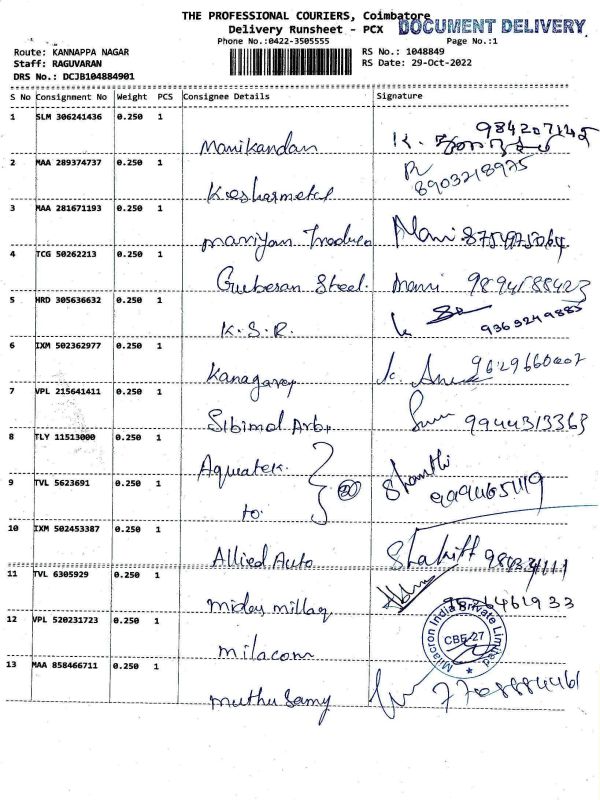 THE PROFESSIONAL COURIERS, Coimbatore
Delivery Runsheet - PCX
DOCUMENT DELIVERY
Phone No.:0422-3505555
Page No.:1
Route: KANNAPPA NAGAR
RS No.: 1048849
Staff: RAGUVARAN
RS Date: 29-Oct-2022
DRS No.: DCJB104884901
S No Consignment No Weight PCS Consignee Details Signature
1 SLM 306241436 0.250 1
Manikandan K. 9842071425
2 MAA 289374737 0.250 1
8903218975
3 MAA 281671193 0.250 1
Mani 8754975064
4 TCG 50262213 0.250 1
Gubesan Steel. mani
5 HRD 305636632 0.250 1
K.S.R. 9363249885
6 IXM 502362977 0.250 1
9629660007
7 VPL 215641411 0.250 1
9944313363
8 TLY 11513000 0.250 1
Aquatek. Shanthi
9 TVL 5623691 0.250 1
to.
10 IXM 502453387 0.250 1
Allied Auto
11 TVL 6305929 0.250 1
12 VPL 520231723 0.250 1
Milacron India Private Limited
CBE-27
milacom
13 MAA 858466711 0.250 1
muthu Samy 7708884461